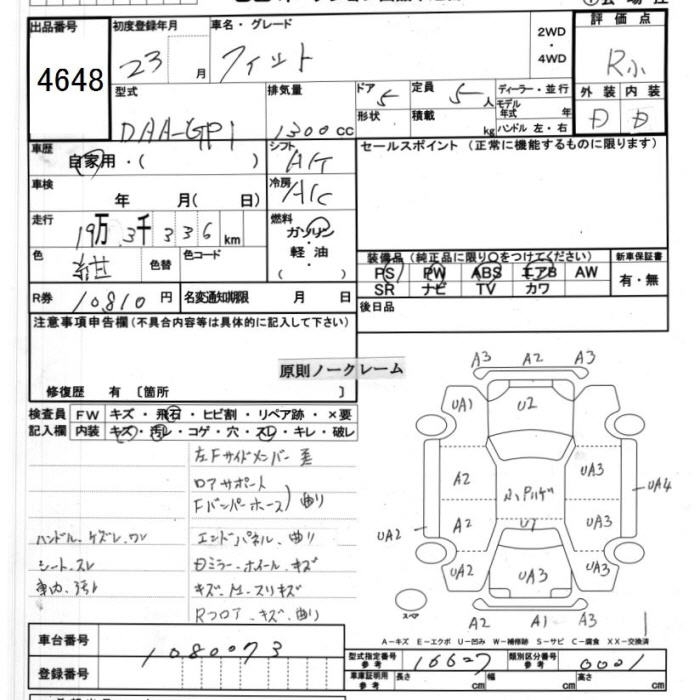 出品番号 初度登録年月 車名・グレード 2WD・4WD 評価点
4648 23月 フィット R小
型式 排気量 ドア 5 定員 5人 ディーラー・並行 外装 内装
DAA-GP1 1300cc 形状 積載 kg モデル年式 年 D D
ハンドル 左・右
車歴 シフト セールスポイント (正常に機能するものに限ります)
自家用・( ) A/T
車検 冷房
年 月( 日) A/C
走行 燃料
19万3千336km ガソリン・軽油・( )
色 色替 色コード 装備品(純正品に限り○をつけてください) 新車保証書
紺 PS PW ABS エアB AW 有・無
SR ナビ TV カワ
R券 10810円 名変通知期限 月 日 後日品
注意事項申告欄(不具合内容等は具体的に記入して下さい)
原則ノークレーム
修復歴 有〔箇所 〕
検査員 FW キズ・飛石・ヒビ割・リペア跡・×要
記入欄 内装 キズ・汚レ・コゲ・穴・スレ・キレ・破レ
左Fサイドメンバー
ロアサポート
Fバンパーホース 曲り
ハンドル、ケズレ、ワレ エンドパネル、曲り
シート、スレ Dミラー、ホイール、キズ
車内、汚レ キズ、M、スリキズ
Rフロア、キズ、曲り
A3 A2 A3
UA1 U2
A2 UA3
UA4
A2 U1 UA3
UA2
UA2 UA3 UA2
スペア
A2 A1 A3
A-キズ E-エクボ U-凹み W-補修跡 S-サビ C-腐食 XX-交換済
車台番号 1080073
型式指定番号 参考 16627 類別区分番号 参考 0001
登録番号 車庫証明用 参考 長さ cm 幅 cm 高さ cm